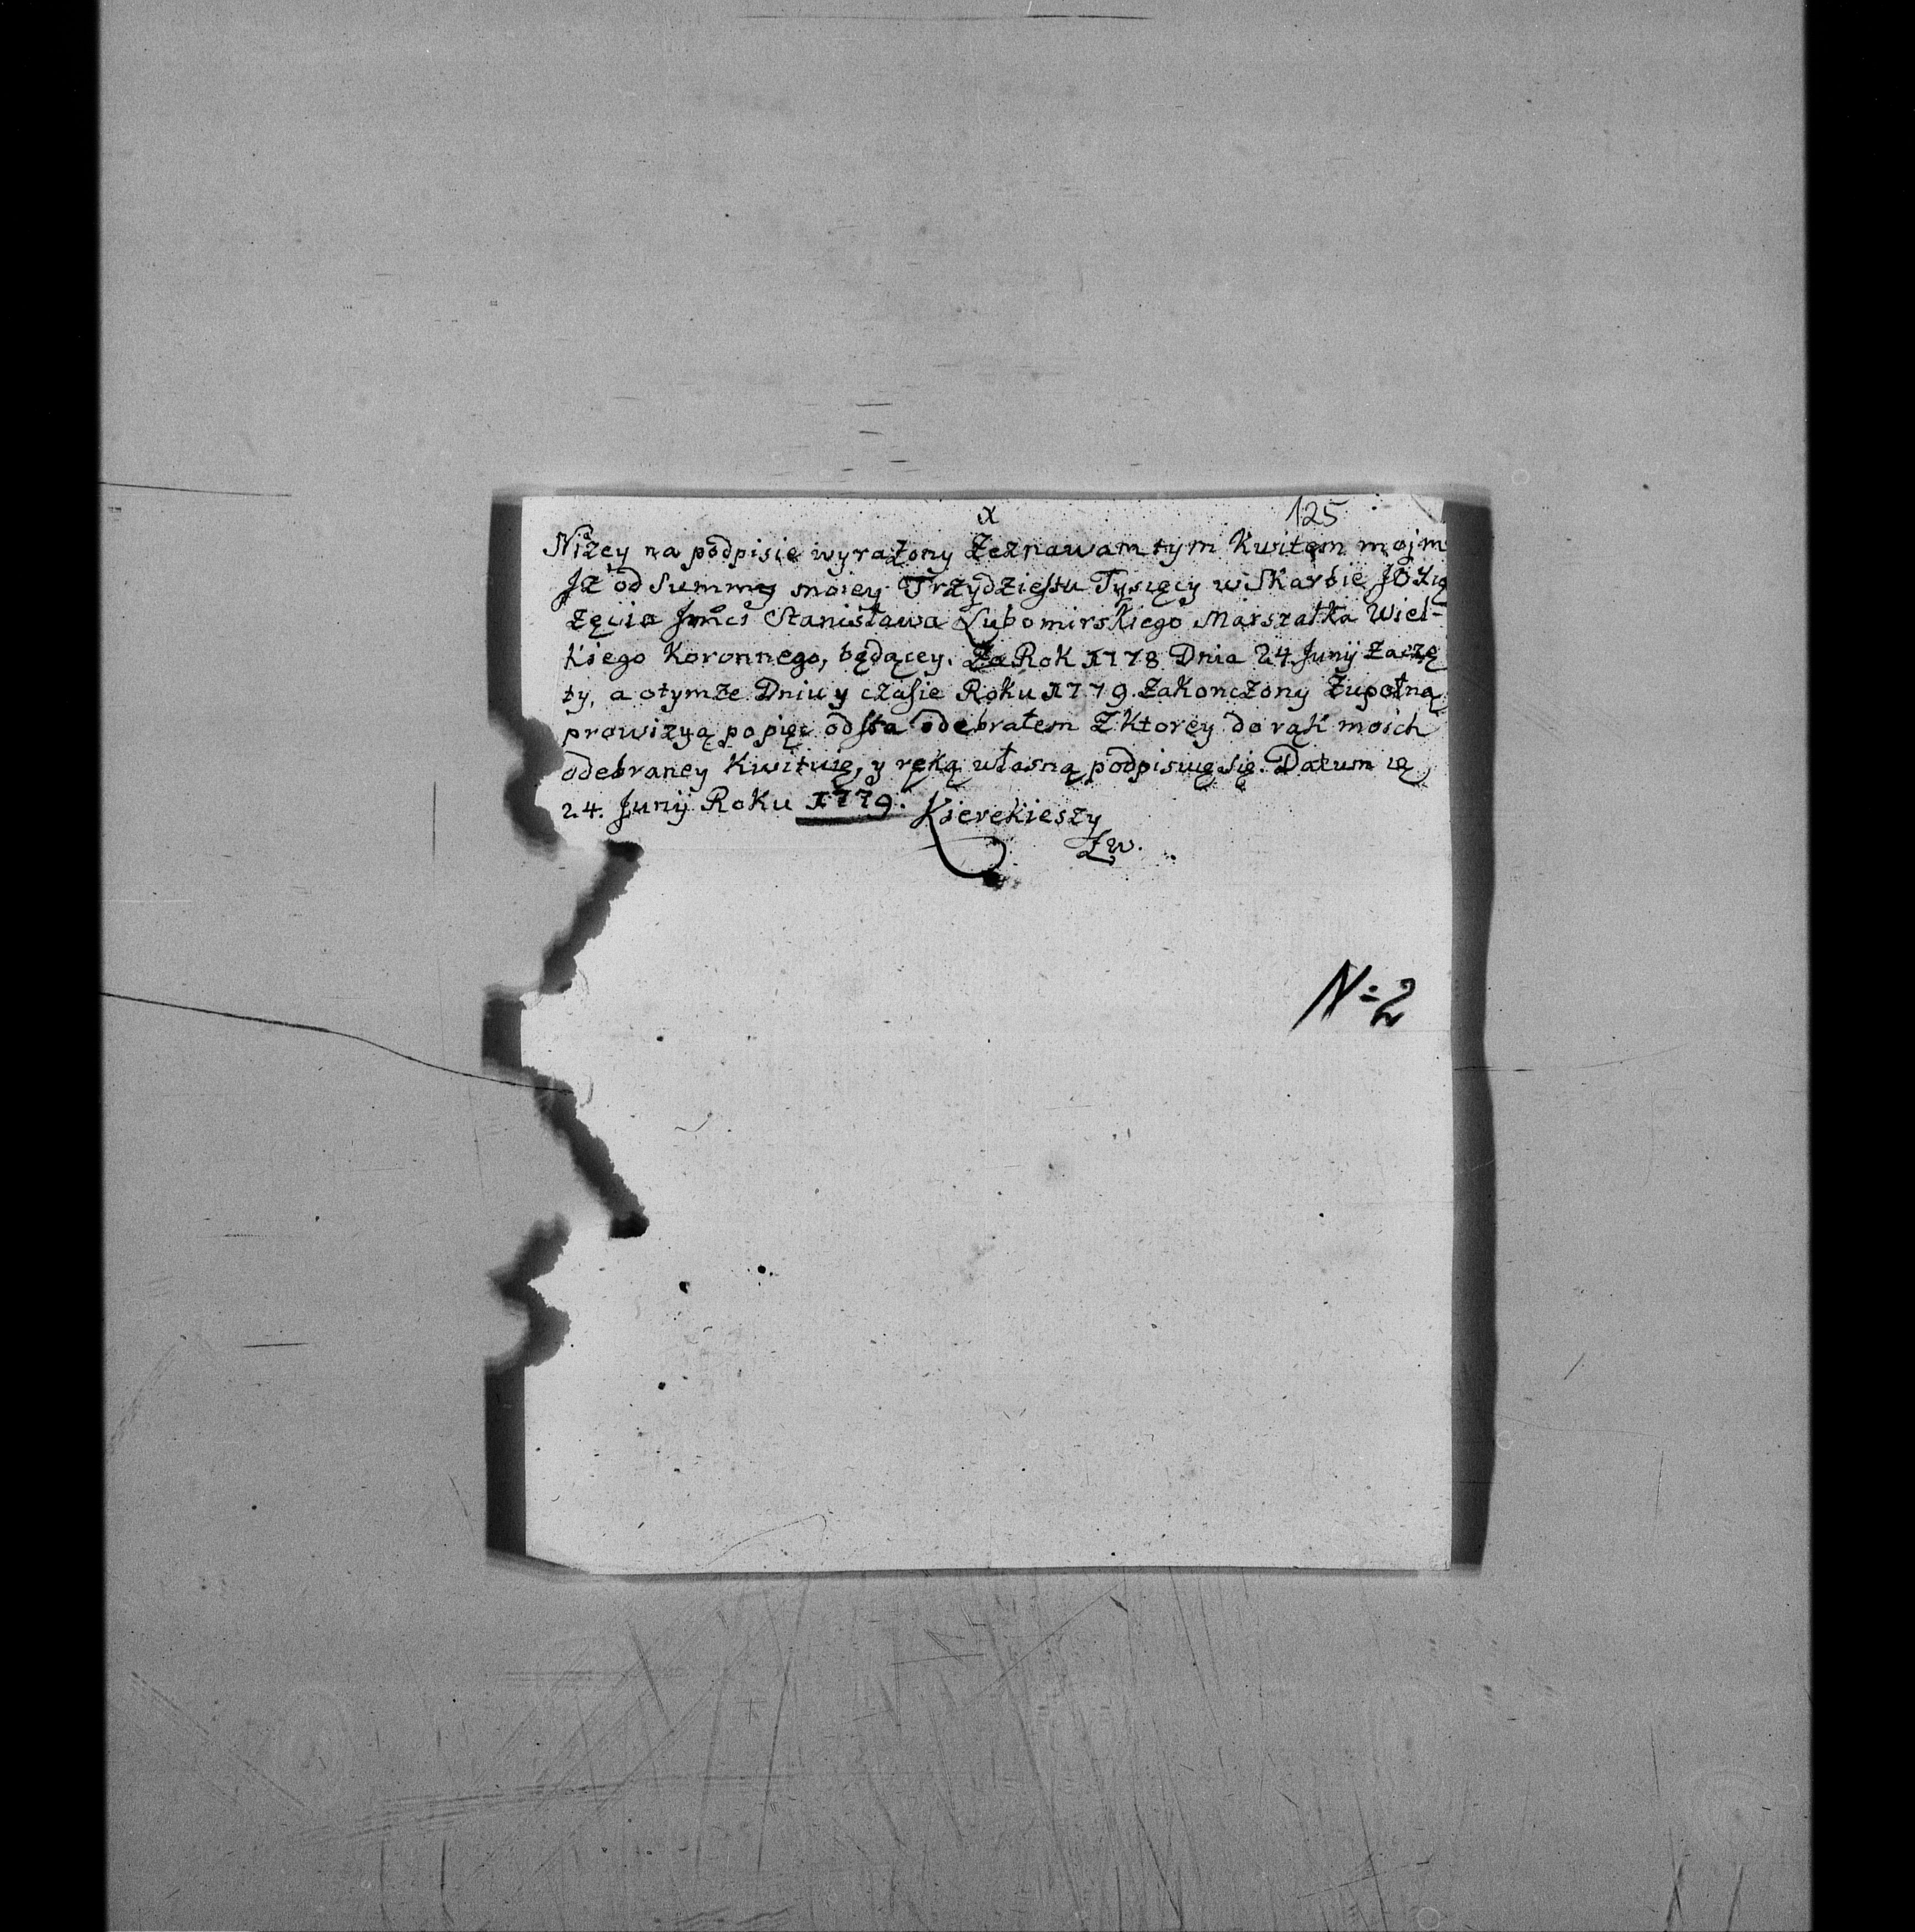 x
125
Niżey na podpisie wyrażony Zeznawam tym Kwitem mojm
Jż od Summy moiey Trzydziestu Tysięcy w Skarbie JO Xią
żęcia Jmci Stanisława Lubomirskiego Marszałka Wiel-
kiego Koronnego, będącey. Za Rok 1778 Dnia 24 Junij Zaczę
ty, a otymże Dniu y czasie Roku 1779 Zakonczony Zupołną
prowizyą po pięc od sta odebrałem Z Ktorey do rąk moich
odebraney Kwituię, y ręką własną podpisuię się. Datum
24. Junij Roku 1779. Kierekieszy
N=2